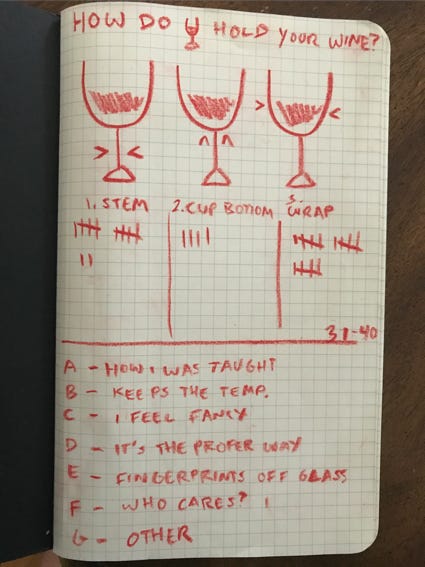 HOW DO U HOLD YOUR WINE?
1. STEM 2. CUP BOTTOM 3. WRAP
31-40
A - HOW I WAS TAUGHT
B - KEEPS THE TEMP.
C - I FEEL FANCY
D - IT'S THE PROPER WAY
E - FINGERPRINTS OFF GLASS
F - WHO CARES? I
G - OTHER